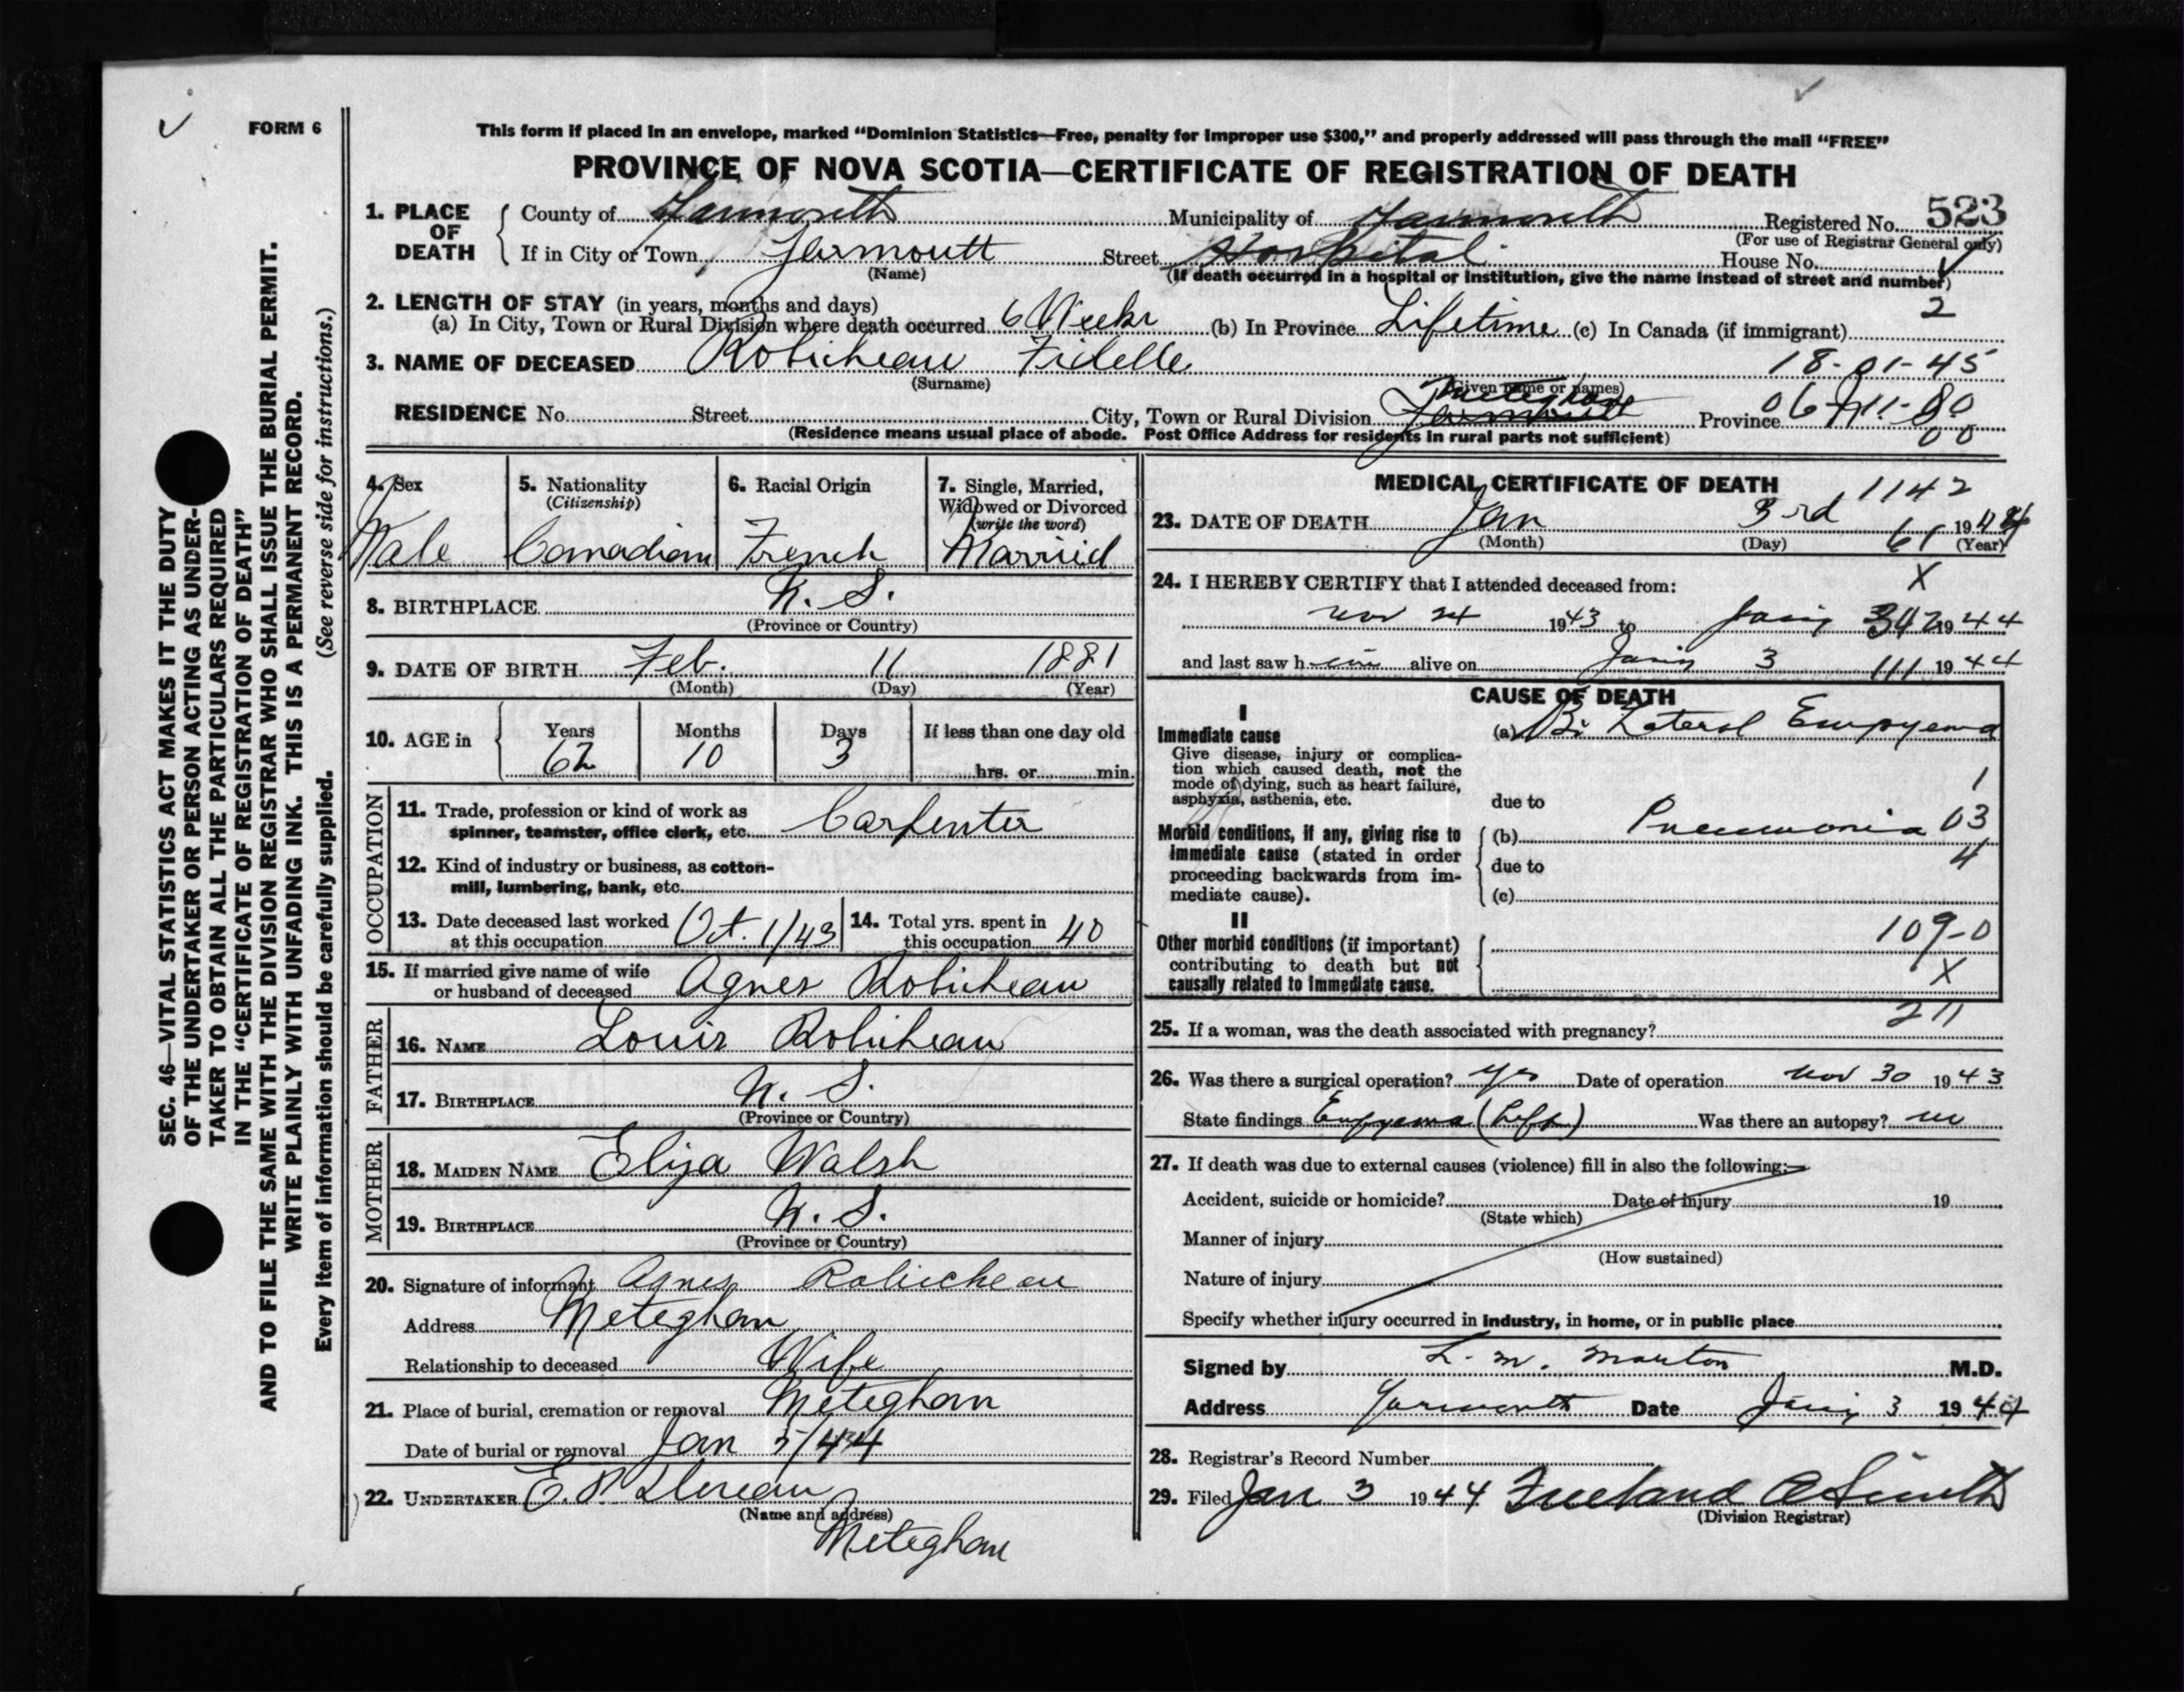 FORM 6
This form if placed in an envelope, marked "Dominion Statistics—Free, penalty for improper use $300," and properly addressed will pass through the mail "FREE"
PROVINCE OF NOVA SCOTIA—CERTIFICATE OF REGISTRATION OF DEATH
SEC. 46—VITAL STATISTICS ACT MAKES IT THE DUTY
OF THE UNDERTAKER OR PERSON ACTING AS UNDER-
TAKER TO OBTAIN ALL THE PARTICULARS REQUIRED
IN THE "CERTIFICATE OF REGISTRATION OF DEATH"
AND TO FILE THE SAME WITH THE DIVISION REGISTRAR WHO SHALL ISSUE THE BURIAL PERMIT.
WRITE PLAINLY WITH UNFADING INK. THIS IS A PERMANENT RECORD.
Every item of information should be carefully supplied. (See reverse side for instructions.)
1. PLACE OF DEATH County of Yarmouth Municipality of Yarmouth Registered No. 523
(For use of Registrar General only)
If in City or Town Yarmouth Street Hospital House No.
(Name) (If death occurred in a hospital or institution, give the name instead of street and number)
2. LENGTH OF STAY (in years, months and days) 2
(a) In City, Town or Rural Division where death occurred 6 Weeks (b) In Province Lifetime (c) In Canada (if immigrant)
3. NAME OF DECEASED Robicheau Fidelle 18-01-45
(Surname) (Given name or names)
RESIDENCE No. Street City, Town or Rural Division Meteghan Yarmouth Province 06-11-80
(Residence means usual place of abode. Post Office Address for residents in rural parts not sufficient) 00
4. Sex Male
5. Nationality (Citizenship) Canadian
6. Racial Origin French
7. Single, Married, Widowed or Divorced (write the word) Married
8. BIRTHPLACE N. S.
(Province or Country)
9. DATE OF BIRTH Feb. 11 1881
(Month) (Day) (Year)
10. AGE in Years 62 Months 10 Days 3 If less than one day old hrs. or min.
OCCUPATION
11. Trade, profession or kind of work as
spinner, teamster, office clerk, etc. Carpenter
12. Kind of industry or business, as cotton-
mill, lumbering, bank, etc.
13. Date deceased last worked at this occupation Oct. 1/43
14. Total yrs. spent in this occupation 40
15. If married give name of wife
or husband of deceased Agnes Robicheau
FATHER
16. NAME Louis Robicheau
17. BIRTHPLACE N. S.
(Province or Country)
MOTHER
18. MAIDEN NAME Eliza Walsh
19. BIRTHPLACE N. S.
(Province or Country)
20. Signature of informant Agnes Robicheau
Address Meteghan
Relationship to deceased Wife
21. Place of burial, cremation or removal Meteghan
Date of burial or removal Jan 5/44
22. UNDERTAKER E. P.
(Name and address)
Meteghan
MEDICAL CERTIFICATE OF DEATH 1142
23. DATE OF DEATH Jan 3rd 1944
(Month) (Day) (Year) 61
24. I HEREBY CERTIFY that I attended deceased from: X
Nov 24 1943 to 1944
and last saw h im alive on 3 111 1944
CAUSE OF DEATH
I
Immediate cause (a) Bi Lateral Empyema
Give disease, injury or complica-
tion which caused death, not the
mode of dying, such as heart failure,
asphyxia, asthenia, etc. due to 1
Morbid conditions, if any, giving rise to (b) Pneumonia 03
immediate cause (stated in order due to 4
proceeding backwards from im-
mediate cause). (c)
II 109-0
Other morbid conditions (if important)
contributing to death but not X
causally related to immediate cause.
211
25. If a woman, was the death associated with pregnancy?
26. Was there a surgical operation? yes Date of operation Nov 30 1943
State findings Empyema (Left) Was there an autopsy? no
27. If death was due to external causes (violence) fill in also the following:—
Accident, suicide or homicide? Date of injury 19
(State which)
Manner of injury
(How sustained)
Nature of injury
Specify whether injury occurred in industry, in home, or in public place
Signed by L. M. Morton M.D.
Address Yarmouth Date 3 1944
28. Registrar's Record Number
29. Filed Jan 3 1944 Freeland A Smith
(Division Registrar)